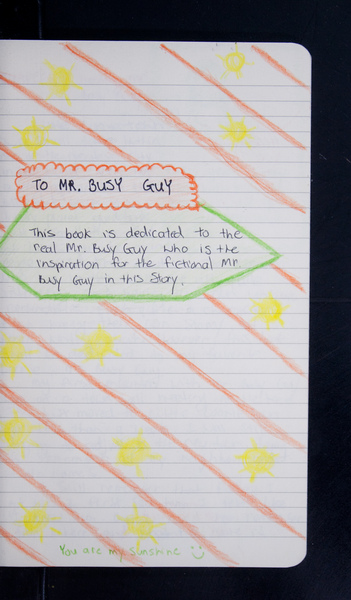 TO MR. BUSY GUY
This book is dedicated to the
real Mr. Busy Guy who is the
inspiration for the fictional Mr
Busy Guy in this Story.
You are my sunshine